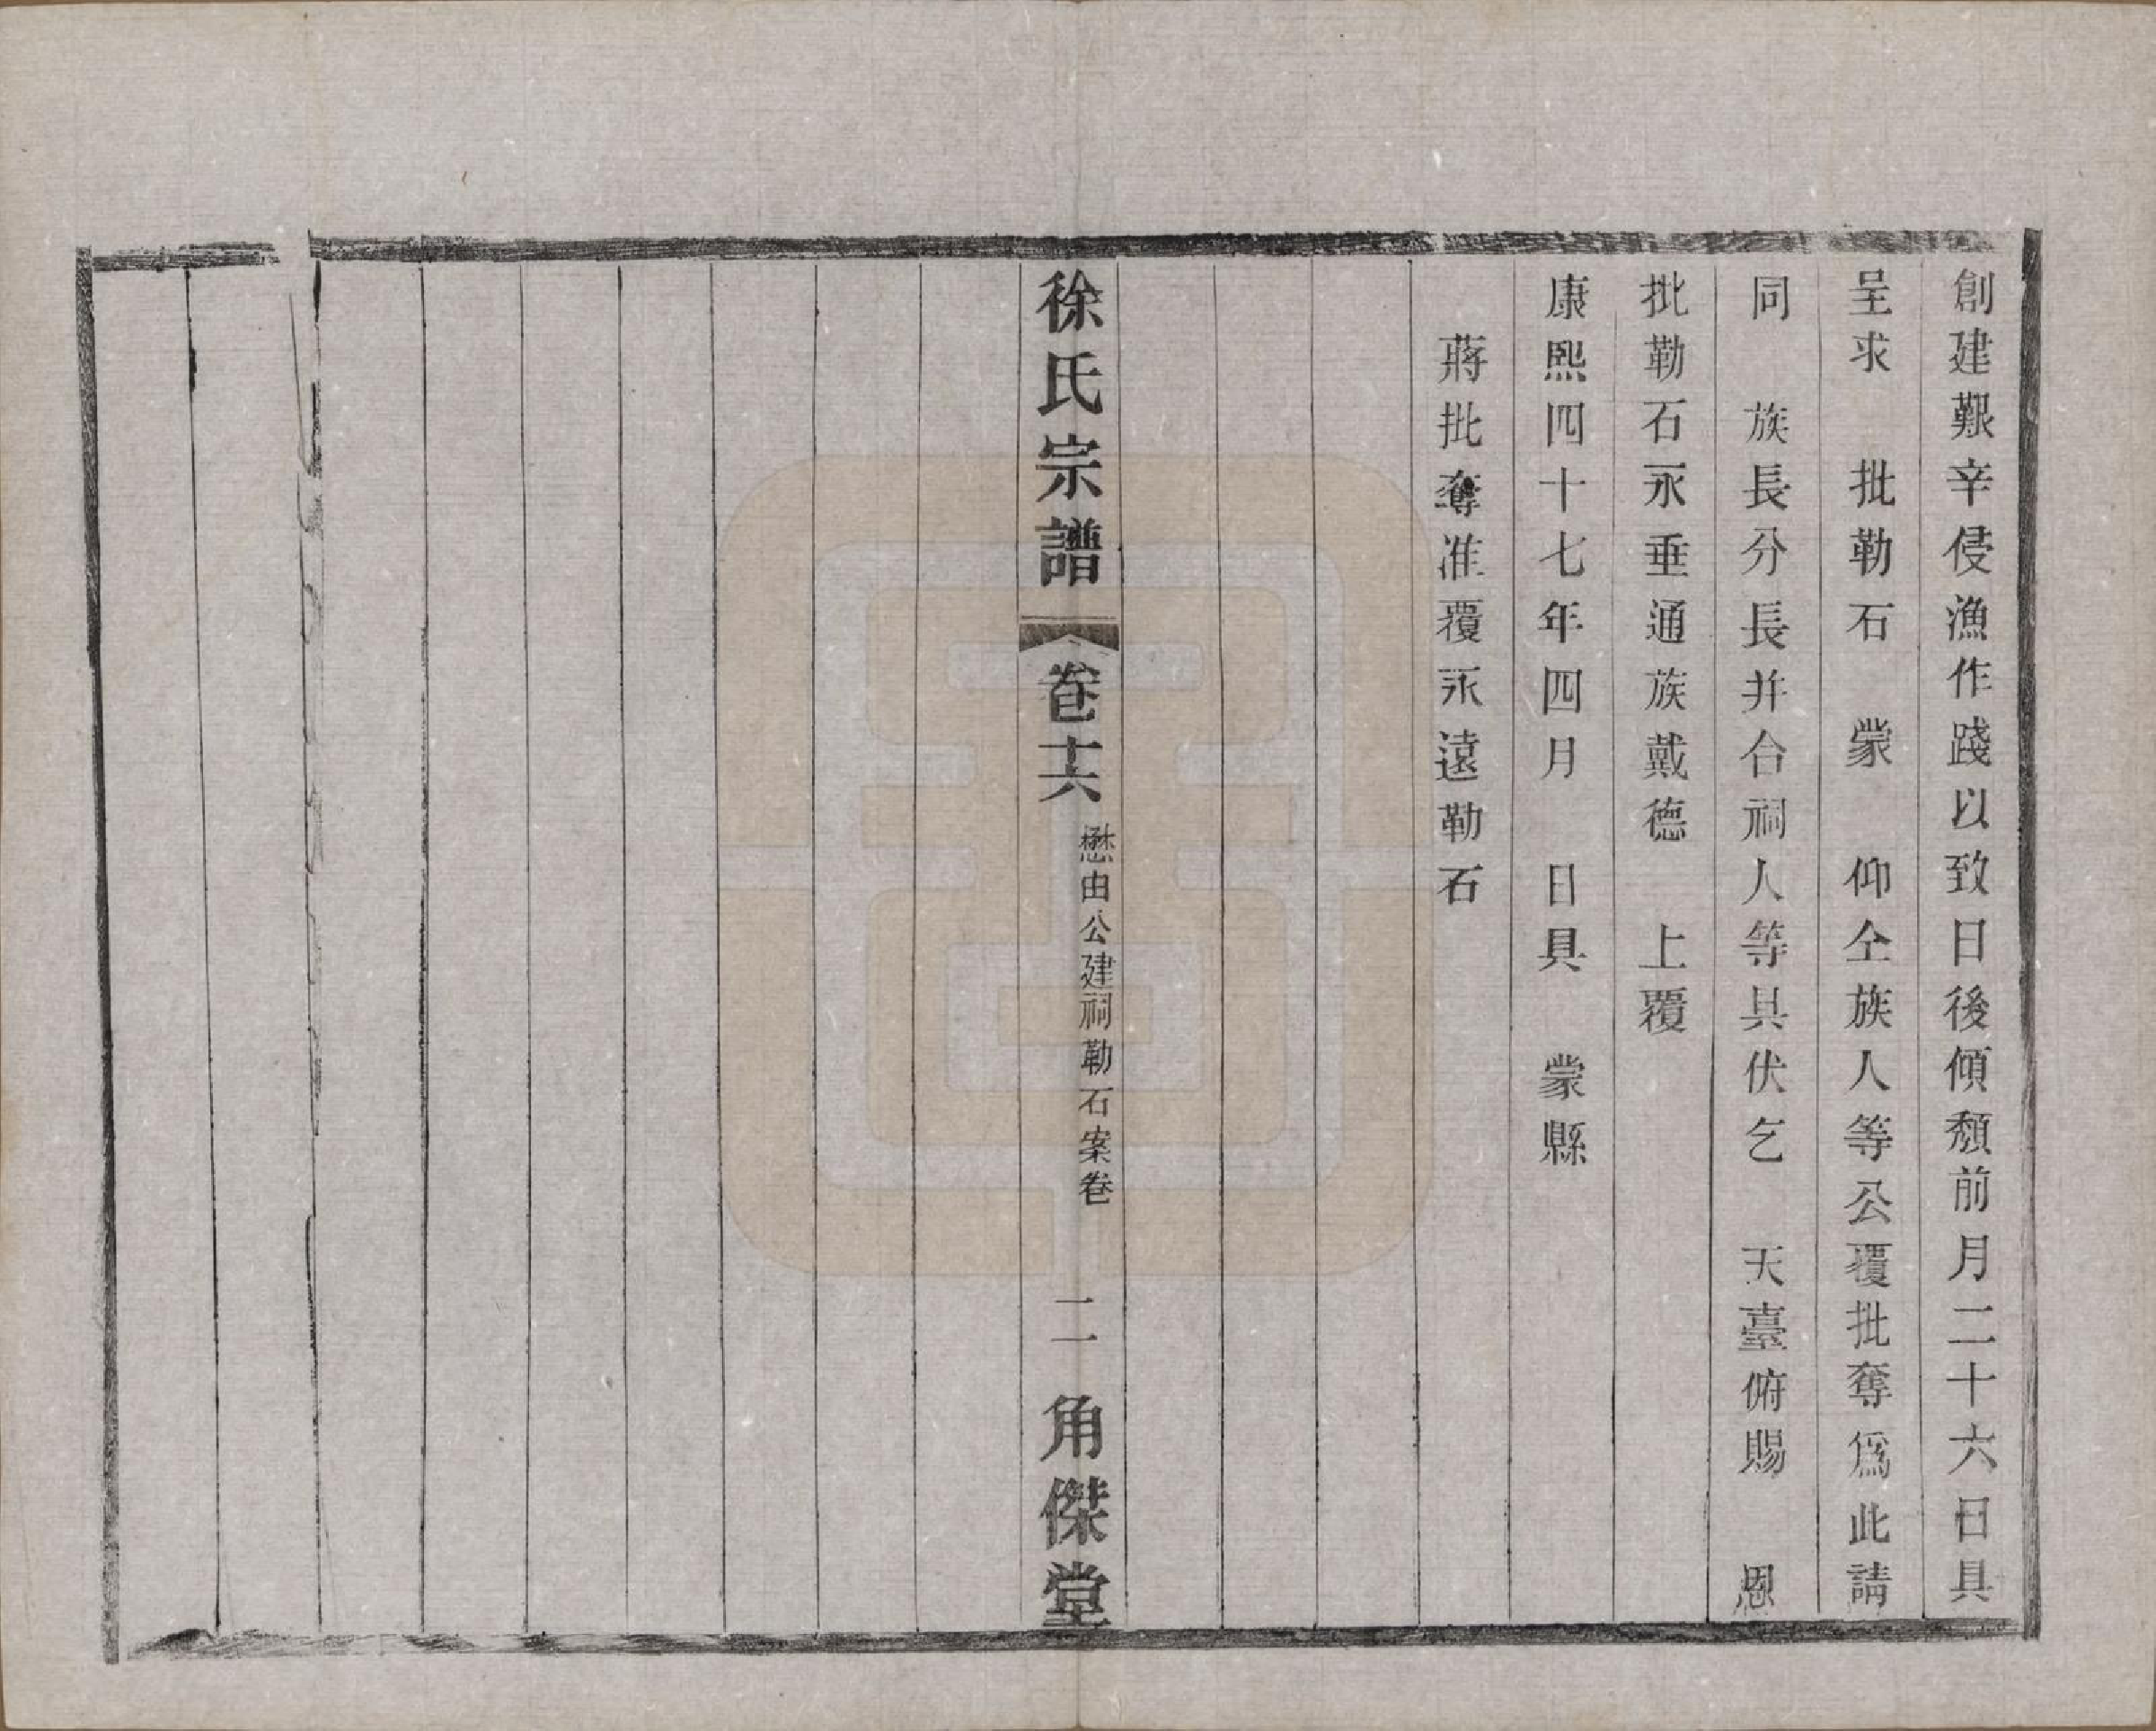 創建艱辛侵漁作踐以致日後傾頽前月二十六日具
呈求　批勒石　蒙　仰仝族人等公覆批奪爲此請
同　族長分長并合祠人等具伏乞　天臺俯賜　恩
批勒石永垂通族戴德　上覆
康熙四十七年四月　日具　蒙縣
蔣批奪准覆永遠勒石
徐氏宗譜　卷十六　懋由公建祠勒石案卷　二　角傑堂